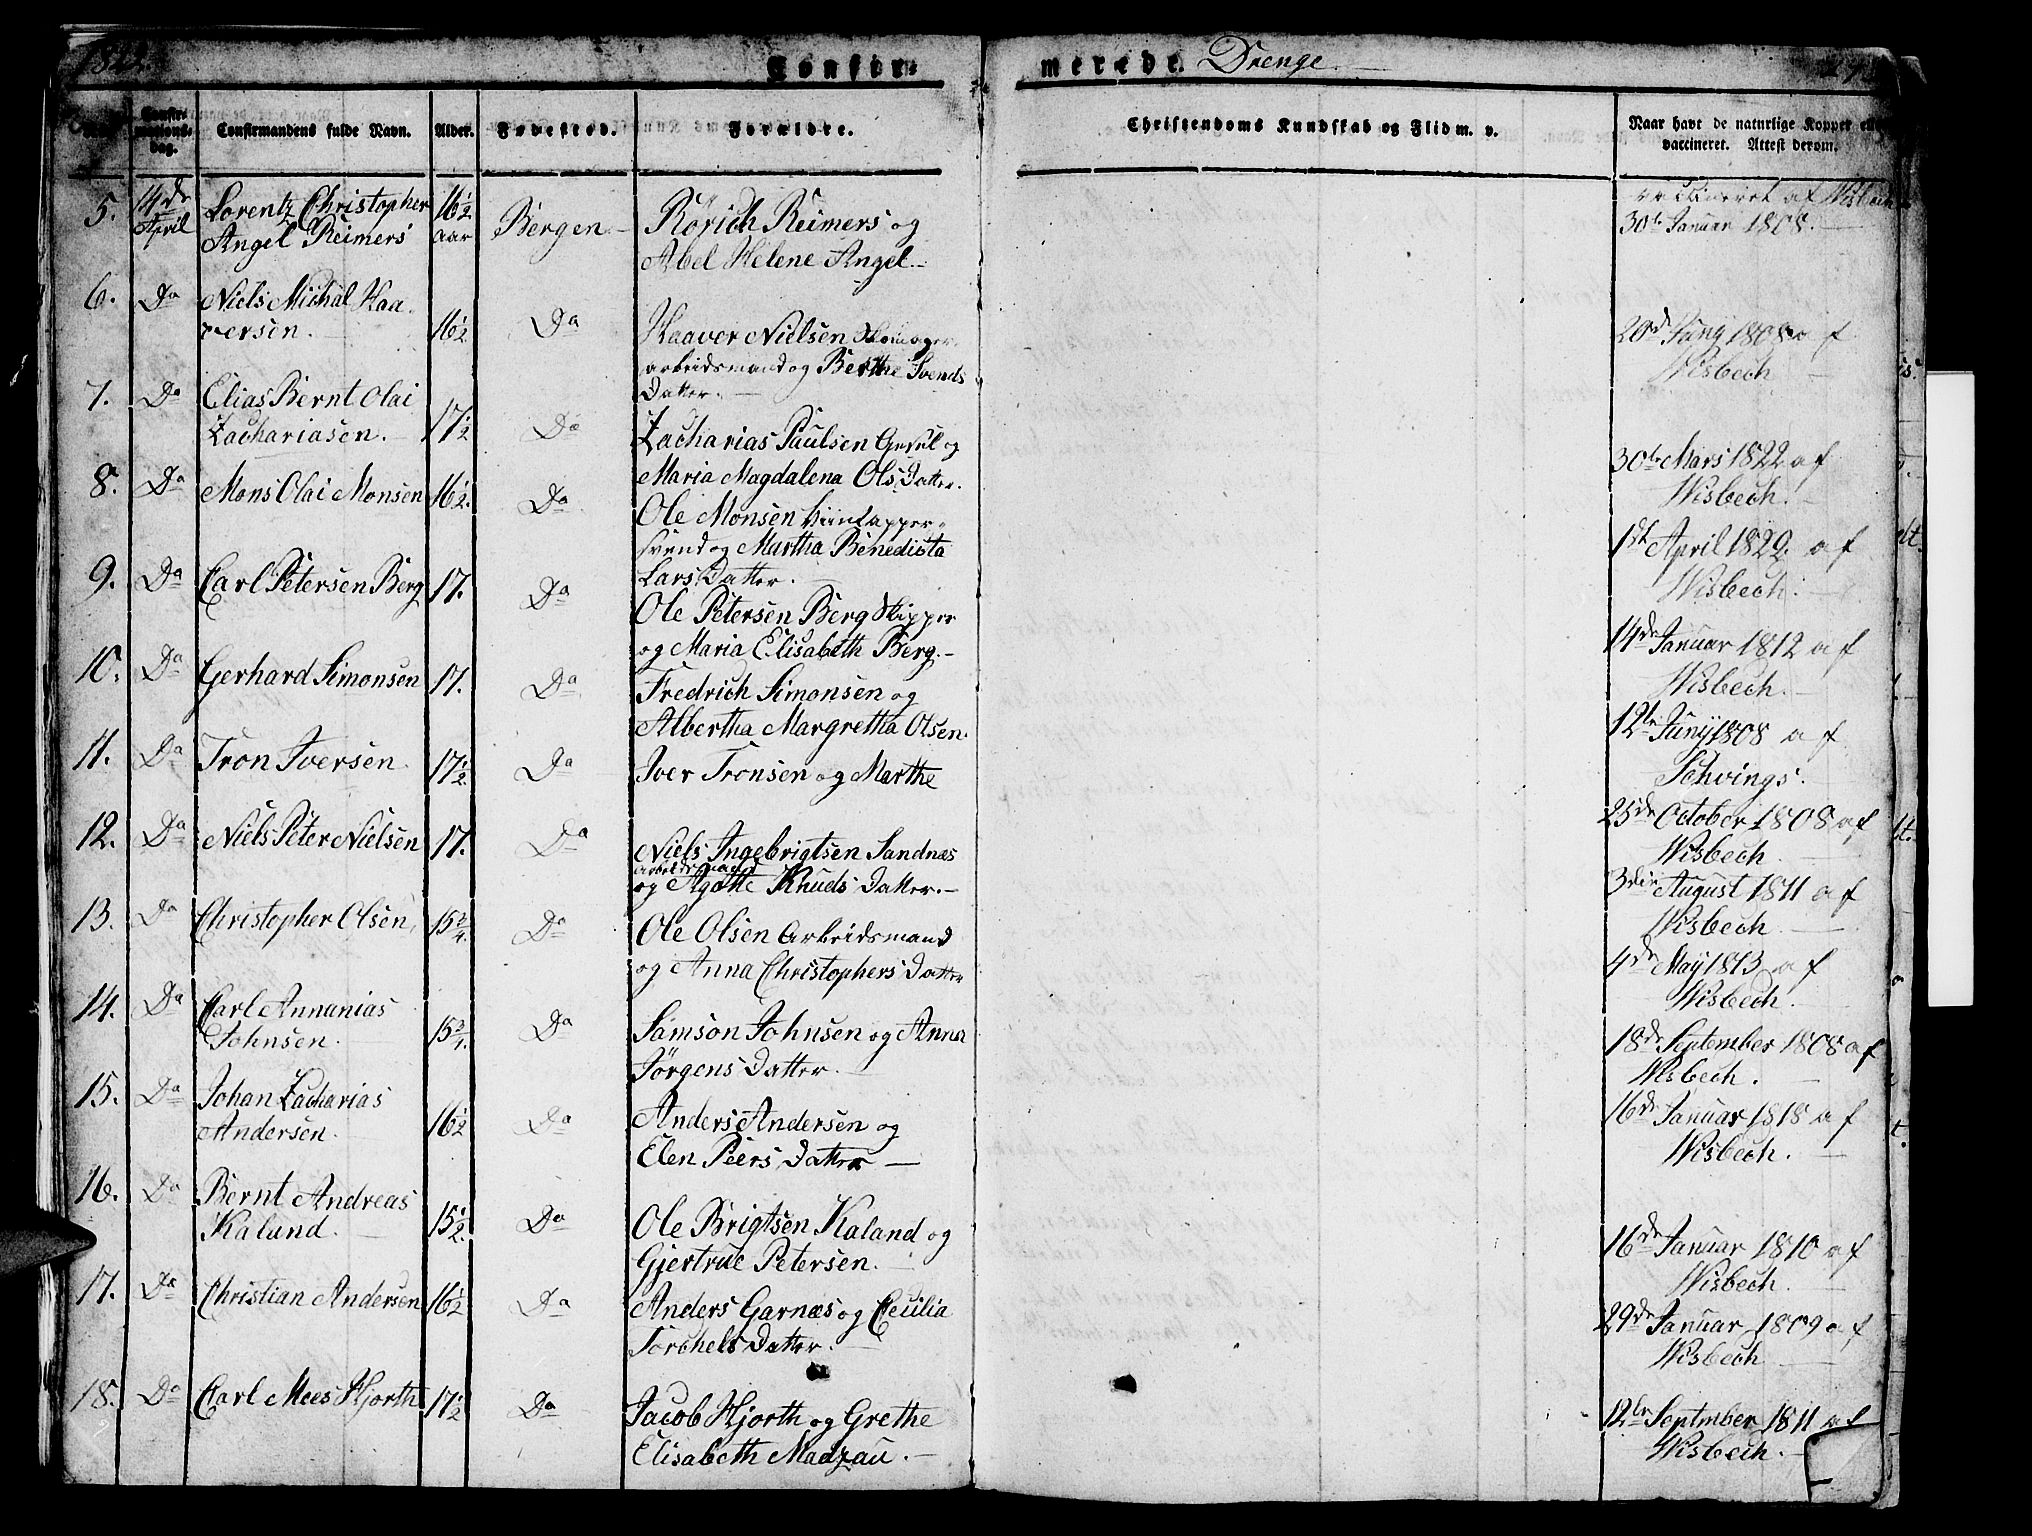 1822.
Confir-
merede. Drenge
Confir-
mations-
dag.
Confirmandens fulde Navn.
Alder.
Fødested.
Forældre.
Christendoms Kundskab og Flid m. v.
Naar havt de naturlige Kopper eller
vaccineret. Attest derom.
5. 14de April Lorentz Christopher 16½ aar Bergen Rørich Reimers og vaccineret af Wisbech
Angel Reimers Abel Helene Angel 30te Januar 1808.
6. Do Niels Michal Haa- 16½ Do Haaver Nielsen 20de Juny 1808 af
versen. arbeidsmand og Berthe Svends Wisbech
Datter.
7. Do Elias Bernt Olai 17½ Do Zacharias Paulsen og 30te Mars 1822 af
Zachariasen. Maria Magdalena Ols Datter. Wisbech.
8. Do Mons Olai Monsen 16½. Do Ole Monsen 1ste April 1820. af
svend og Martha Benedicta Wisbech.
Lars Datter.
9. Do Carl Petersen Berg 17. Do Ole Petersen Berg Skipper 14de Januar 1812 af
og Maria Elisabeth Berg. Wisbech.
10. Do Gerhard Simonsen 17. Do Fredrich Simonsen og 12te Juny 1808 af
Albertha Margretha Olsen. Schvings.
11. Do Tron Iversen 17½. Do Iver Tronsen og Marthe 25de October 1808 af
Wisbech.
12. Do Niels Peter Nielsen 17. Do Niels Ingebrigtsen Sandnæs 3die August 1811 af
arbeidsmand
og Agathe Knuds Datter. Wisbech
13. Do Christopher Olsen, 15¾. Do Ole Olsen Arbeidsmand 4de May 1813 af
og Anna Christophers Datter Wisbech.
14. Do Carl Annanias 15¾. Do Samson Johnsen og Anna 18de September 1808 af
Johnsen. Jørgens Datter. Wisbech.
15. Do Johan Zacharias 16½ Do Anders Andersen og 16de Januar 1818 af
Andersen. Elen Peers Datter Wisbech.
16. Do Bernt Andreas 15½. Do Ole Brigtsen Kaland og 16de Januar 1810 af
Kaland. Gjertrue Petersen. Wisbech.
17. Do Christian Andersen 16½ Do Anders Garnæs og Cecilia 29de Januar 1809 af
Torchels Datter. Wisbech
18. Do Carl Mees Hjorth 17½ Do Jacob Hjorth og Grethe 12te September 1811 af
Elisabeth Madzau. Wisbech.